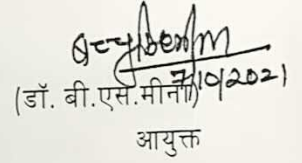 7/10/2021
(डॉ. बी.एस.मीना)
आयुक्त